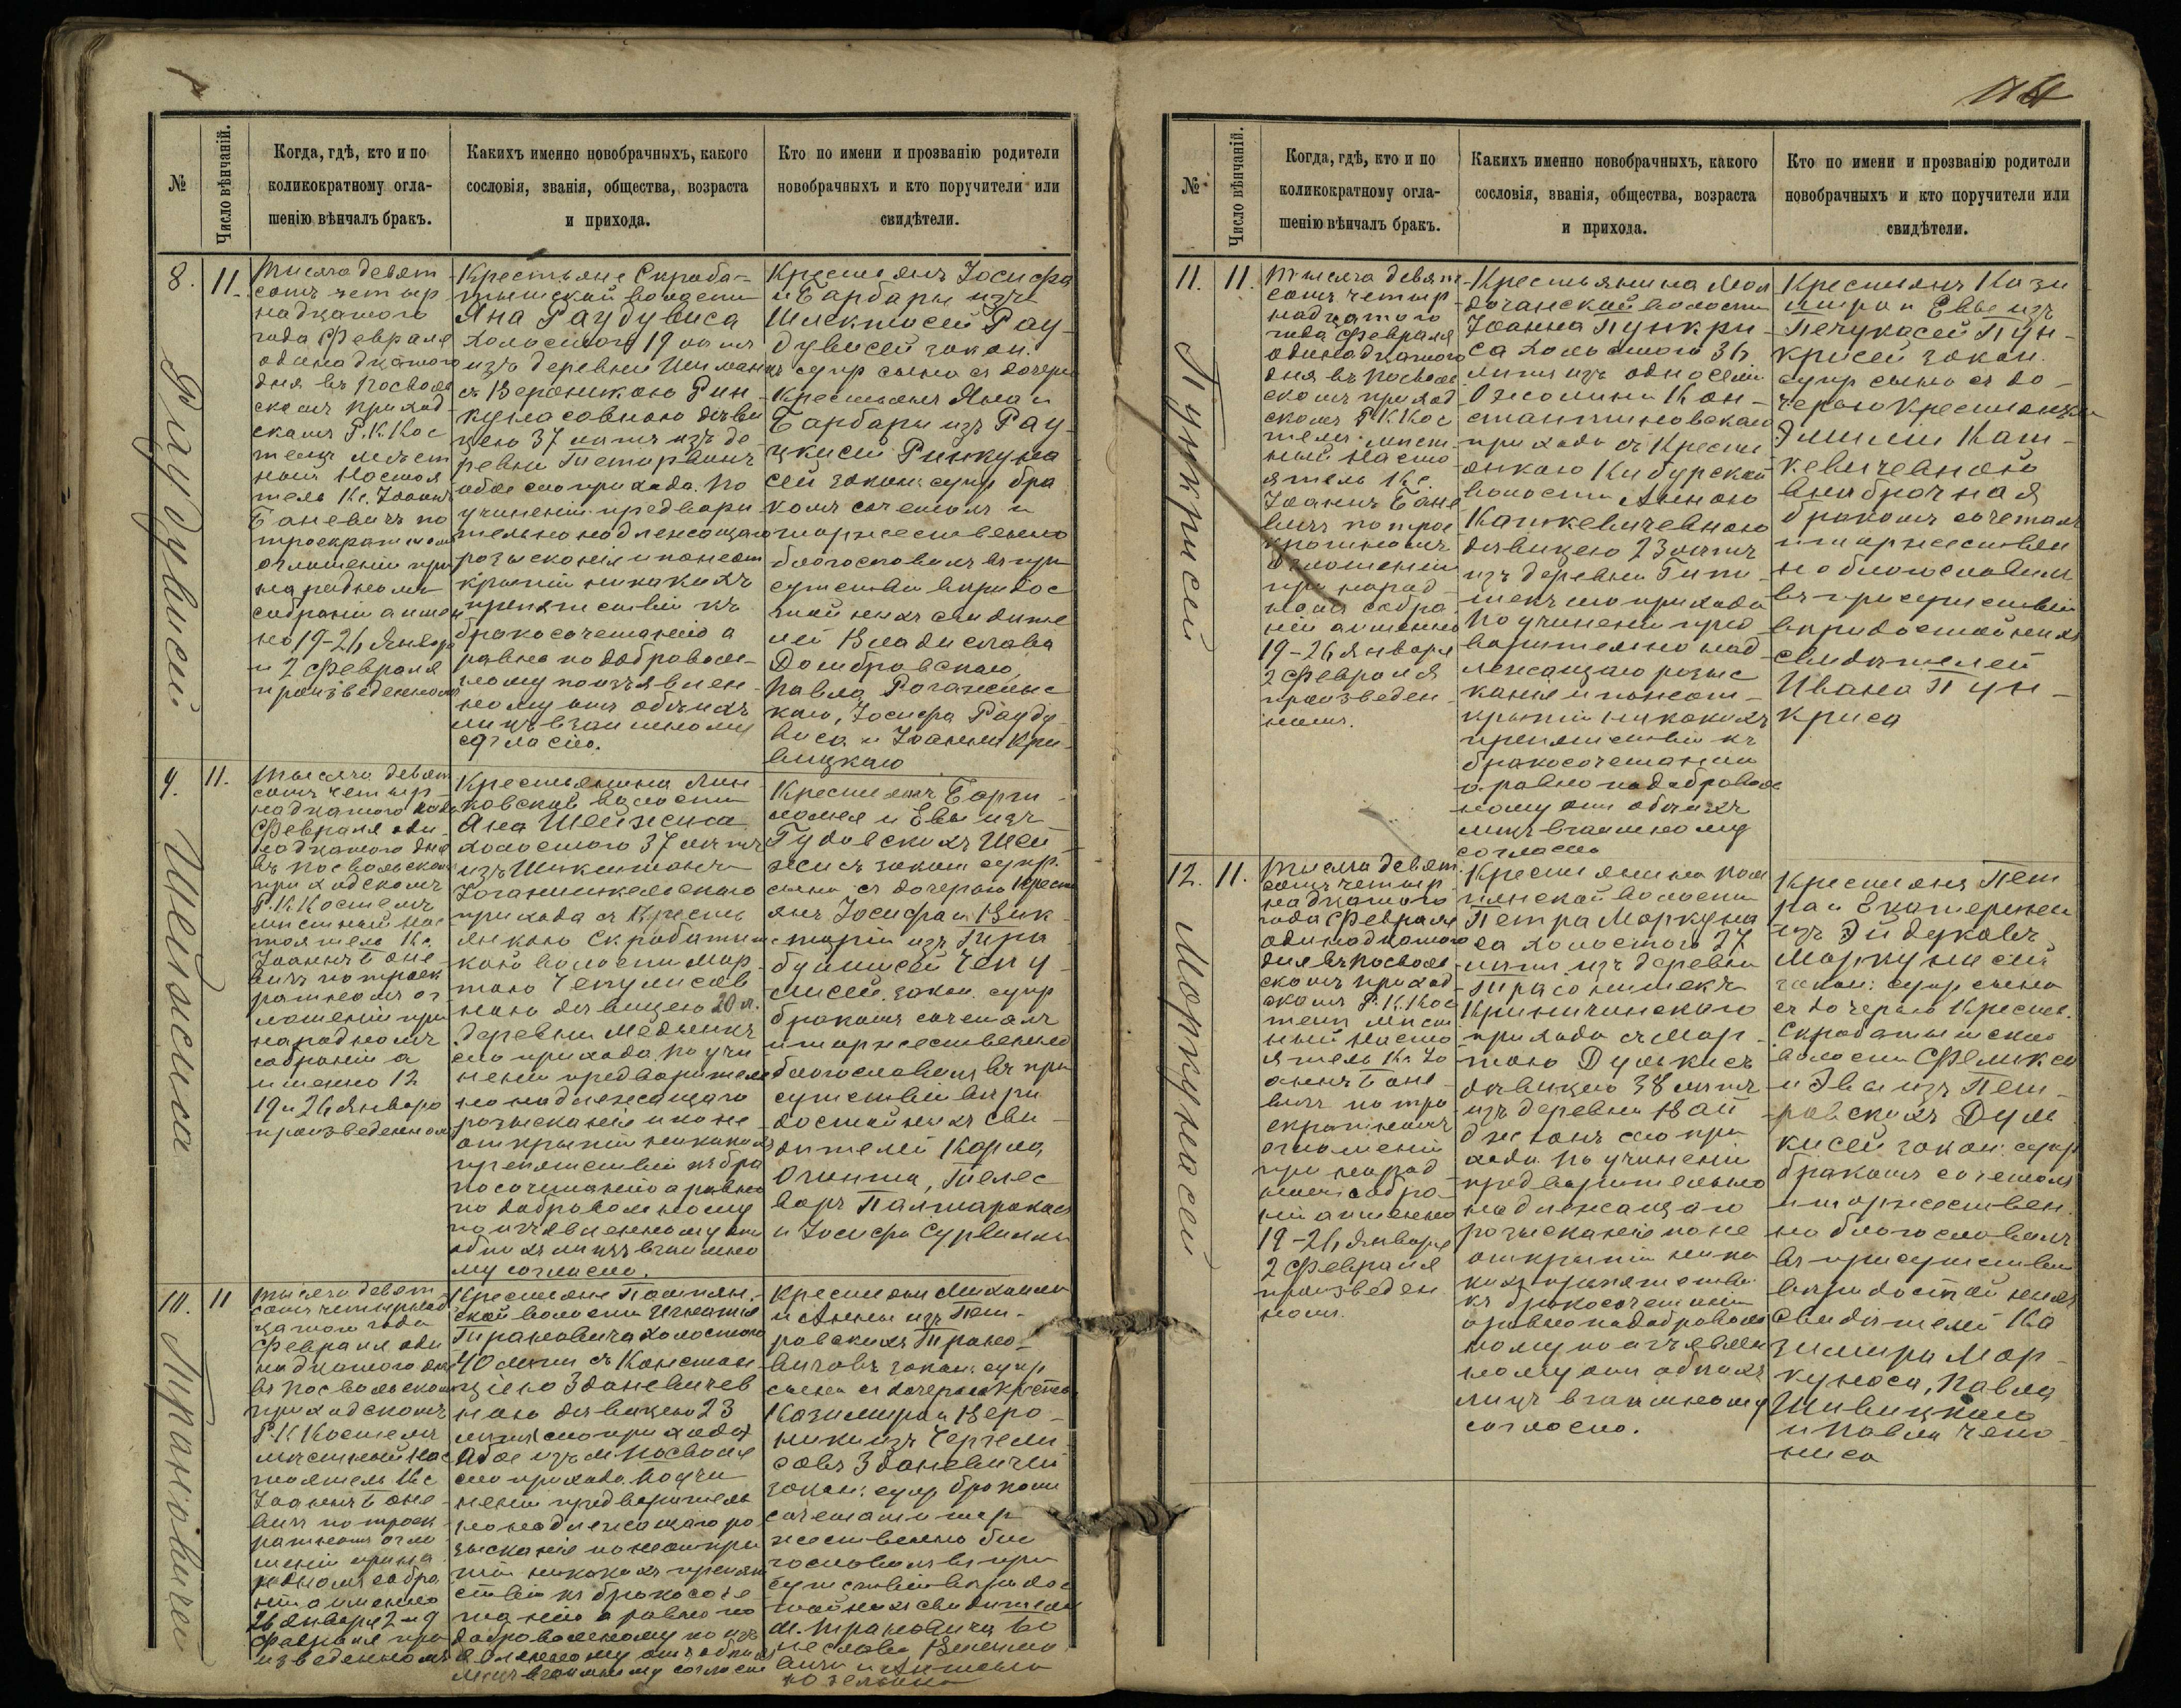 114
№
Число вѣнчаній.
Когда, гдѣ, кто и по
коликократному огла-
шенію вѣнчалъ бракъ.
Какихъ именно новобрачныхъ, какого
сословія, званія, общества, возраста
и прихода.
Кто по имени и прозванію родители
новобрачныхъ и кто поручители или
свидѣтели.
8.
11.
Тысяча девят
сотъ четыр
надцатого
года Февраля
одинадцатого
дня въ Посволь
скомъ приход
скомъ Р. К. Кос
телѣ мѣст
ный Настоя
тель Кс. Іоаннъ
Баневичъ по
троекратномъ
оглашеніи при
народномъ
собраніи а имен
но 19-26 Января
и 2 Февраля
произведенномъ
Крестьяне Скроба-
тышской волости
Яна Раудувиса
холостого 19 лѣтъ
изъ деревни Шиман
съ Вероникою Рин
кунасовною дѣви
цею 37 лѣтъ изъ де
ревни
обое сего прихода. По
учиненіи предвари
тельно надлежащаго
розысканія и неот
крытіи никакихъ
препятствій къ
бракосочетанію а
равно по доброволь-
ному по изъявлен-
ному отъ обоихъ
лицъ взаимному
согласію.
Крестьянъ Іосифа
и Барбары изъ
Рау-
дувисей закон.
супр сына съ дочерью
Крестьянъ Яна и
Барбары изъ Рау-
цкисей Ринкуна
сей закон: супр бра
комъ сочеталъ и
торжественно
благословилъ въ при
сутствіи вѣридос
тойныхъ свидѣте
лей Владислава
Домбровскаго,
Павла
каго, Іосифа Рауду-
виса и Іоанна Кри-
вицкаго
Раудувисей
9.
11.
Тысяча девят
сотъ четыр-
надцатого года
Февраля оди-
надцатого дня
въ Посвольском
приходскомъ
Р. К. Костелѣ
мѣстный Нас
тоятель Кс.
Іоаннъ Бане-
вичъ по троек
ратномъ ог
лашеніи при
народномъ
собраніи а
именно 12
19 и 26 Января
произведенном
Крестьянина Лин
ковской волости
Яна Шейжиса
холостого 37 лѣтъ
изъ
Іоганишкельскаго
прихода съ Кресть
янкою Скробатиш
кой волости Мар
тою Чепулисов
ною дѣвицею 20 л.
деревни Медникъ
сего прихода. По учи
неніи предваритель
но надлежащаго
розысканія и не
открытіи никакихъ
препятствій къ бра
косочетанію а равно
по добровольному
по изъявленному отъ
обоихъ лицъ взаимно
му согласію.
Крестьянъ Барти-
ломея и Евы изъ
Гудовскихъ Шей-
жисъ закон супр.
сына съ дочерью Крест
янъ Іосифа и Вик-
торіи изъ
Чепу-
лисей. закон. супр
бракомъ сочеталъ
и торжественно
благословилъ въ при
сутствіи вѣри
достойныхъ сви-
дѣтелей Карла
и Іосифа
Шейжиса
10.
11
Тысяча девят
сотъ четырнад
цатого года
Февраля оди
надцатого дня
въ Посвольском
приходскомъ
Р. К. Костелѣ
мѣстный Нас
тоятель Кс
Іоаннъ Бане-
вичъ по троек
ратномъ огла
шеніи при на
родномъ собра
ніи а именно
26 Января 2 и 9
Февраля про
изведенномъ
Крестьяне
ской волости Игнатія
Тирановича холостого
40 лѣтъ съ Констан
ціею Здановичев
ною дѣвицею 23
лѣтъ (сего прихода)
Обое изъ м. Посволя
сего прихода. По учи
неніи предваритель
но надлежащаго ро
зысканія по неоткры
тіи никакихъ препят
ствій къ бракосоче
танію а равно по
добровольному по изъ
явленному отъ обоихъ
лицъ взаимному согласію
Крестьянъ Михаила
и Анны изъ Пет-
ровскихъ Тирано-
вичовъ закон: супр
сына съ дочерью Крест
Казимира и Веро-
ники изъ
закон: супр бракомъ
сочеталъ и тор
жественно бла
гословилъ въ при
сутствіи вѣридос
тойныхъ свидѣтелей
М. Тирановича
Тирановичей
11.
11.
Тысяча девят
сотъ четыр
надцатого
года Февраля
одинадцатого
дня въ Посволь
скомъ приход
скомъ Р. К. Кос
телѣ мѣст
ный Насто
ятель Кс.
Іоаннъ Бане
вичъ по трое
кратномъ
оглашеніи
при народ
номъ собра
ніи а именно
19-26 Января
2 Февраля
произведен
номъ.
Крестьянина
волости
Іоанна Пункри
са холостого 36
лѣтъ изъ односелія
Кон-
стантиновскаго
прихода съ Кресть
янкою Кибурской
волости Анною
Каткевичевною
дѣвицею 23 лѣтъ
изъ деревни
сего прихода
По учиненіи пред
варительно над
лежащаго розыс
канія и неот-
крытіи никакихъ
препятствій къ
бракосочетанію
а равно по доброволь
ному отъ обоихъ
лицъ взаимному
согласію
Крестьянъ Кази
мира и Евы изъ
Пун-
крисей закон.
супр сына съ до-
черью Крестьянки
Эмиліи Кат-
кевичевной
внѣбрачная
бракомъ сочеталъ
и торжествен
но благословилъ
въ присутствіи
вѣридостойныхъ
свидѣтелей
Ивана Пун-
криса
Пункрисей
12.
11.
Тысяча девят
сотъ четыр
надцатого
года Февраля
одинадцатого
дня въ Посволь
скомъ приход
скомъ Р. К. Кос
телѣ мѣст
ный Насто
ятель Кс Іо
аннъ Бане-
вичъ по тро
екратномъ
оглашеніи
при народ
номъ собра-
ніи а именно
19-26 Января
2 Февраля
произведен
номъ.
Крестьянина
волости
Петра Моркуна
са холостого 27
лѣтъ изъ деревни
Криничинскаго
прихода съ Мар-
тою Дулькисъ
дѣвицею 38 лѣтъ
изъ деревни Вай
сего при
хода. По учиненіи
предварительно
надлежащаго
розысканія по не
открытіи ника
кихъ препятствій
къ бракосочетанію
а равно по доброволь
ному по изъявлен
ному отъ обоихъ
лицъ взаимному
согласію.
Крестьянъ Пет
ра и Екатерины
изъ
Моркунасей
закон: супр сына
съ дочерью Крестьян.
Скробатышской
волости Феликса
и Эвы изъ Пет-
ровскихъ Дуль
кисей закон: супр
бракомъ сочеталъ
и торжествен
но благословилъ
въ присутствіи
вѣридостойныхъ
свидѣтелей Ка
зимира Мор-
куноса, Павла
и Павла Чепо
ниса
Моркунасей